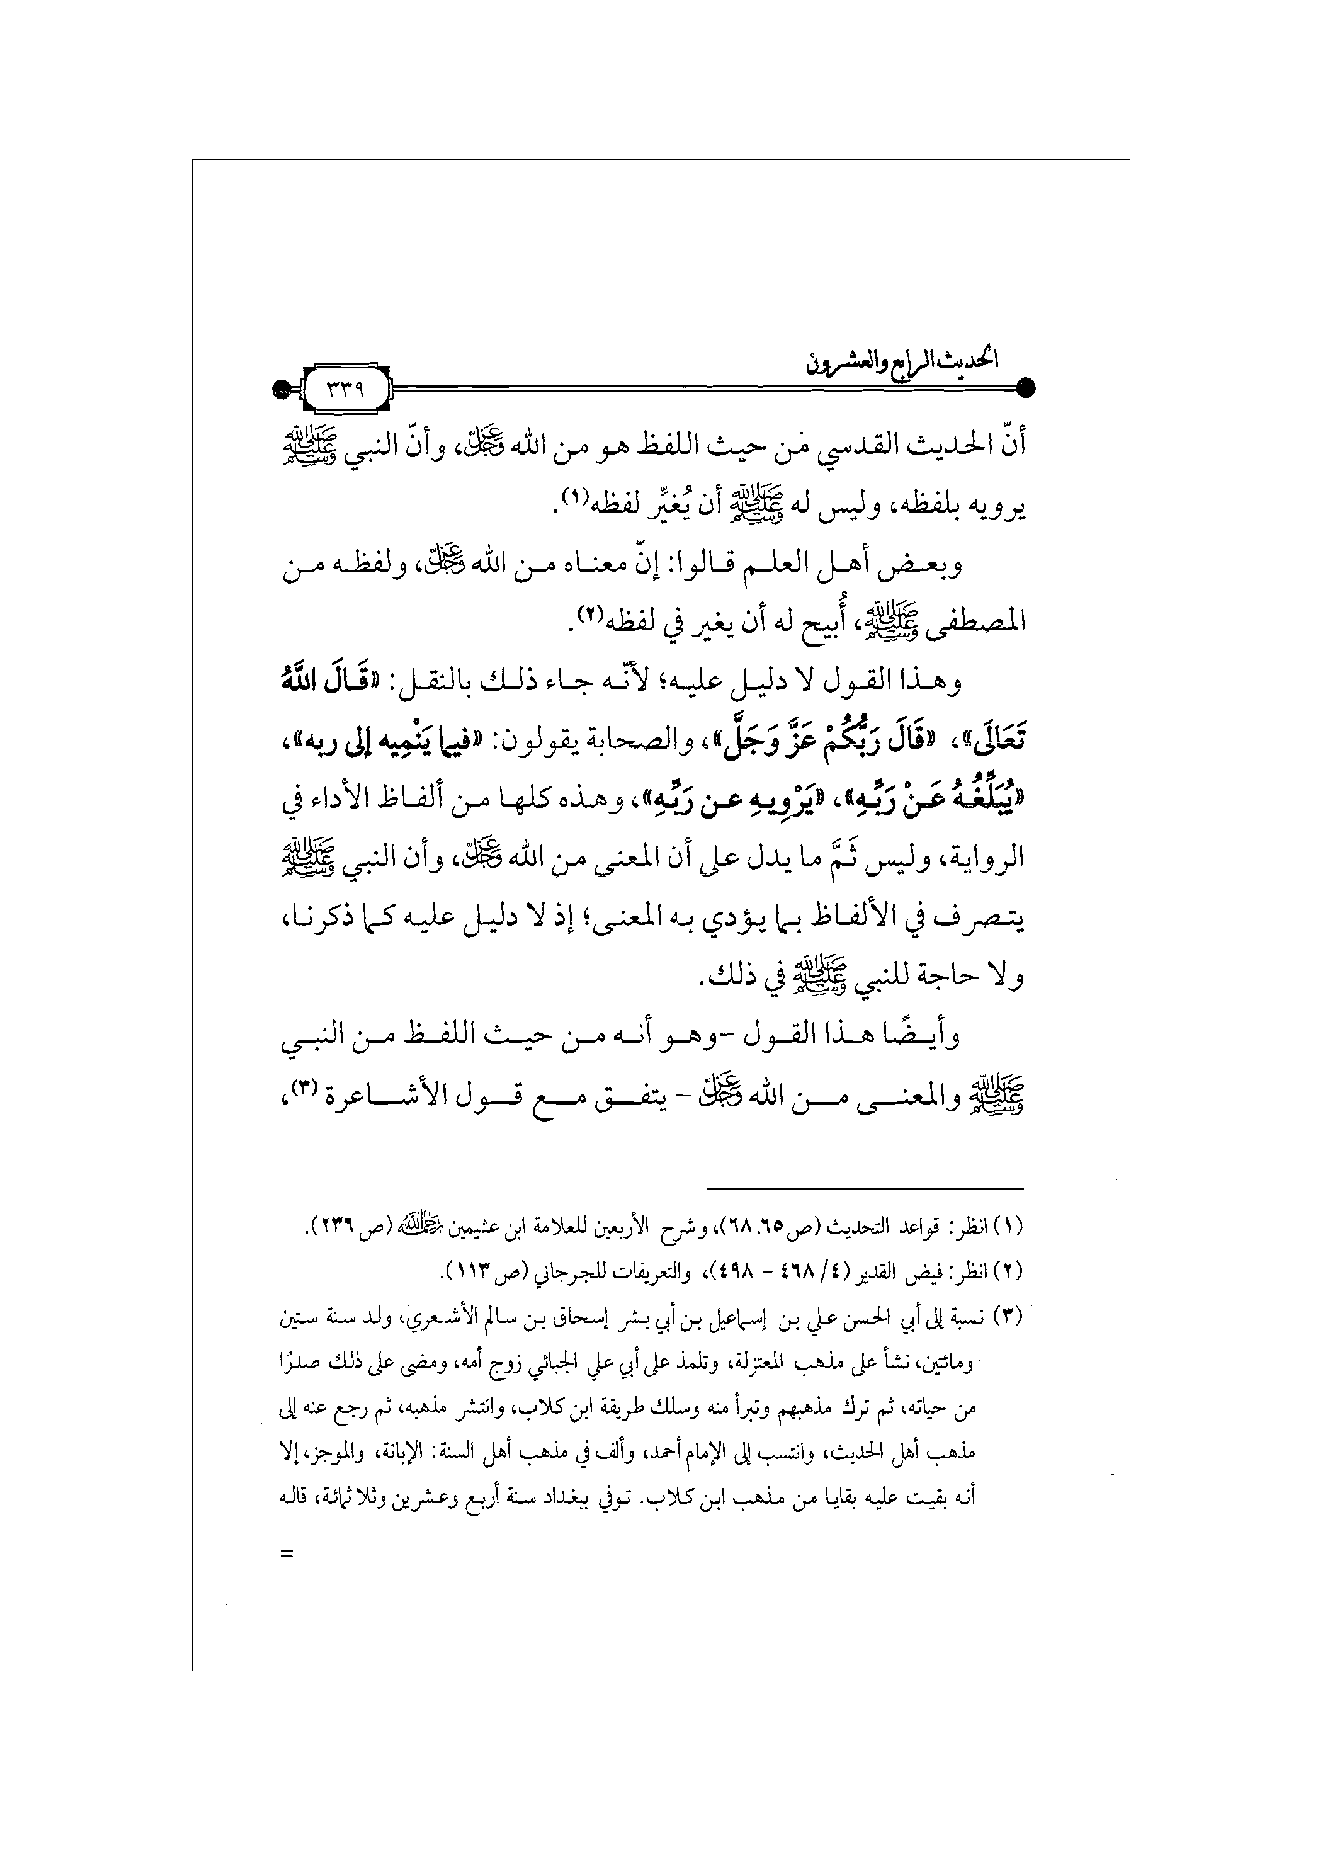 الحديث الرابع والعشرون
٣٣٩
أنّ الحديث القدسي من حيث اللفظ هو من الله ﷿، وأنّ النبي ﷺ
يرويه بلفظه، وليس له ﷺ أن يُغيِّر لفظه(١).
وبعض أهل العلم قالوا: إنّ معناه من الله ﷿، ولفظه من
المصطفى ﷺ، أُبيح له أن يغير في لفظه(٢).
وهذا القول لا دليل عليه؛ لأنّه جاء ذلك بالنقل: «قَالَ اللَّهُ
تَعَالَى»، «قَالَ رَبُّكُمْ عَزَّ وَجَلَّ»، والصحابة يقولون: «فيما يَنْمِيه إلى ربه»،
«يُبَلِّغُهُ عَنْ رَبِّهِ»، «يَرْوِيهِ عن رَبِّهِ»، وهذه كلها من ألفاظ الأداء في
الرواية، وليس ثَمَّ ما يدل على أن المعنى من الله ﷿، وأن النبي ﷺ
يتصرف في الألفاظ بما يؤدي به المعنى؛ إذ لا دليل عليه كما ذكرنا،
ولا حاجة للنبي ﷺ في ذلك.
وأيضًا هذا القول -وهو أنه من حيث اللفظ من النبي
ﷺ والمعنى من الله ﷿ - يتفق مع قول الأشاعرة (٣)،
(١) انظر: قواعد التحديث (ص٦٥، ٦٨)، وشرح الأربعين للعلامة ابن عثيمين رحمه الله (ص٢٣٦).
(٢) انظر: فيض القدير (٤/ ٤٦٨ - ٤٩٨)، والتعريفات للجرجاني (ص١١٣).
(٣) نسبة إلى أبي الحسن علي بن إسماعيل بن أبي بشر إسحاق بن سالم الأشعري، ولد سنة ستين
ومائتين، نشأ على مذهب المعتزلة، وتلمذ على أبي علي الجبائي زوج أمه، ومضى على ذلك صدرًا
من حياته، ثم ترك مذهبهم وتبرأ منه وسلك طريقة ابن كلاب، وانتشر مذهبه، ثم رجع عنه إلى
مذهب أهل الحديث، وانتسب إلى الإمام أحمد، وألف في مذهب أهل السنة: الإبانة، والموجز، إلا
أنه بقيت عليه بقايا من مذهب ابن كلاب. توفي ببغداد سنة أربع وعشرين وثلاثمائة، قاله
=